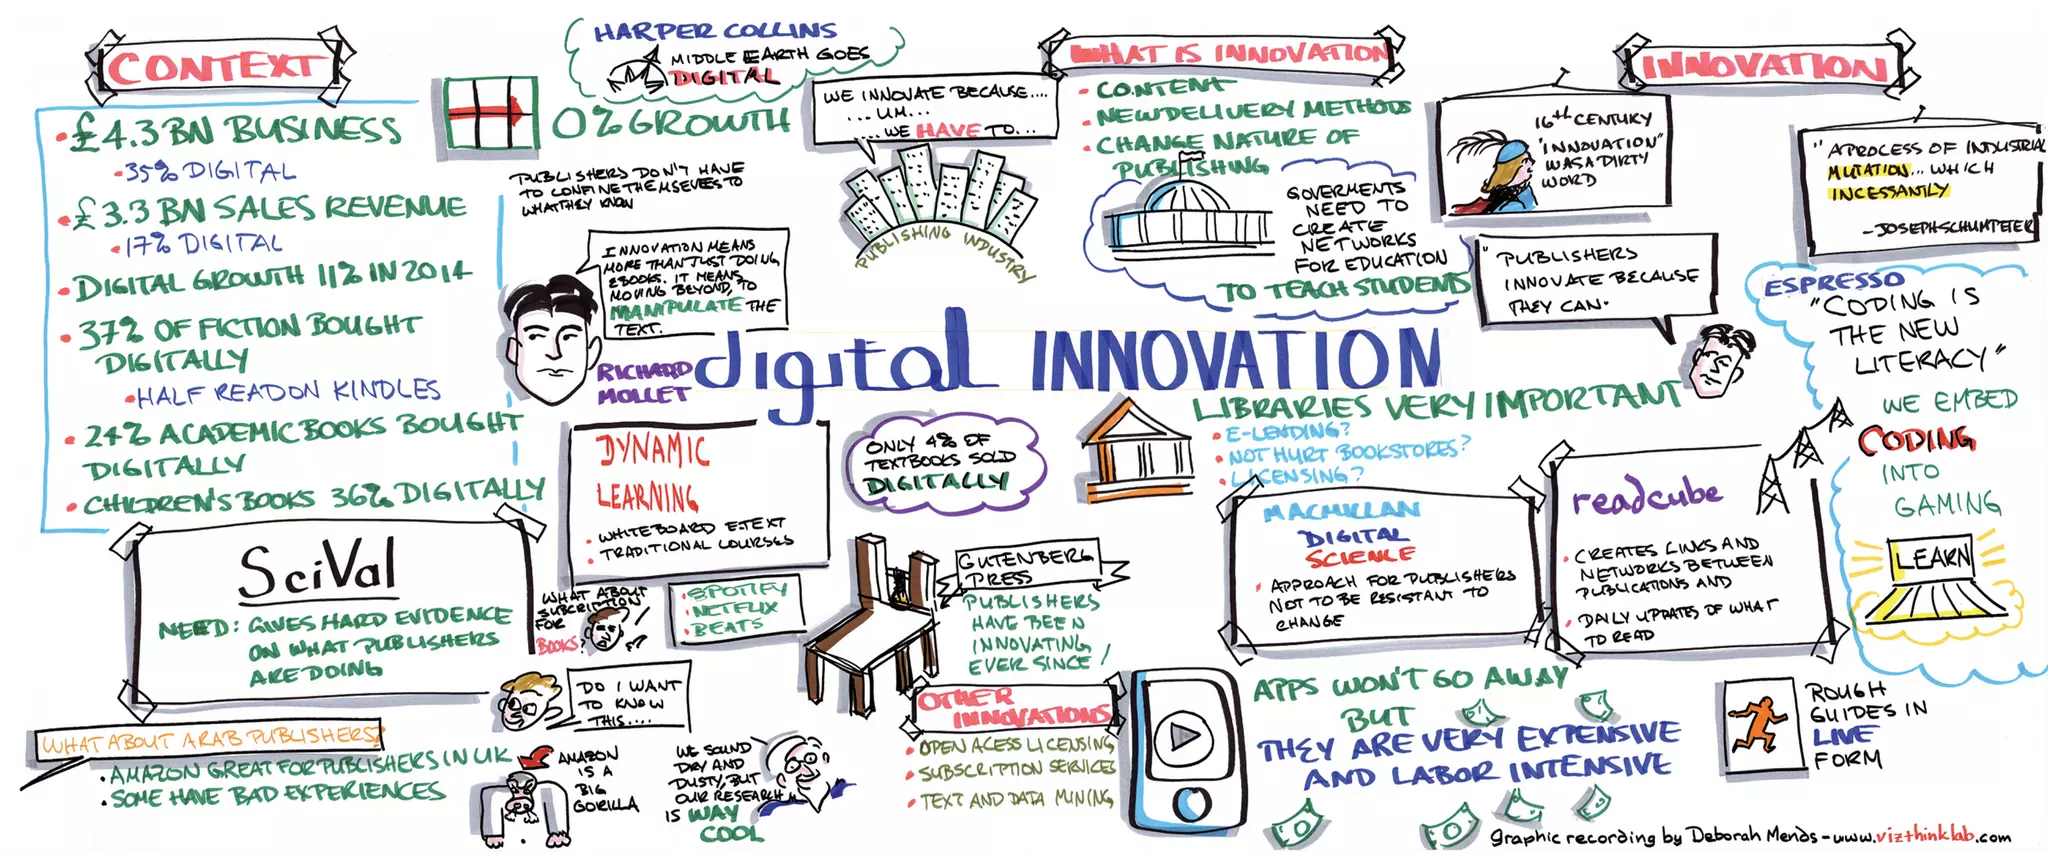 CONTEXT
• £4.3 BN BUSINESS
• 35% DIGITAL
• £3.3 BN SALES REVENUE
• 17% DIGITAL
• DIGITAL GROWTH 11% IN 2014
• 37% OF FICTION BOUGHT
DIGITALLY
• HALF READ ON KINDLES
• 24% ACADEMIC BOOKS BOUGHT
DIGITALLY
• CHILDREN'S BOOKS 36% DIGITALLY
HARPER COLLINS
MIDDLE EARTH GOES
DIGITAL
0% GROWTH
PUBLISHERS DON'T HAVE
TO CONFINE THEMSEVES TO
WHAT THEY KNOW
INNOVATION MEANS
MORE THAN JUST DOING
EBOOKS. IT MEANS
MOVING BEYOND, TO
MANIPULATE THE
TEXT.
RICHARD
MOLLET
WE INNOVATE BECAUSE....
... UM...
....WE HAVE TO...
PUBLISHING INDUSTRY
WHAT IS INNOVATION
• CONTENT
• NEW DELIVERY METHODS
• CHANGE NATURE OF
PUBLISHING
GOVERMENTS
NEED TO
CREATE
NETWORKS
FOR EDUCATION
TO TEACH STUDENTS
INNOVATION
16th CENTURY
"INNOVATION"
WAS A DIRTY
WORD
"A PROCESS OF INDUSTRIAL
MUTATION... WHICH
INCESSANTLY
- JOSEPH SCHUMPETER
"PUBLISHERS
INNOVATE BECAUSE
THEY CAN.
ESPRESSO
"CODING IS
THE NEW
LITERACY"
WE EMBED
CODING
INTO
GAMING
LEARN
digital INNOVATION
DYNAMIC
LEARNING
• WHITEBOARD E-TEXT
• TRADITIONAL COURSES
ONLY 4% OF
TEXTBOOKS SOLD
DIGITALLY
LIBRARIES VERY IMPORTANT
• E-LENDING?
• NOT HURT BOOKSTORES?
• LICENSING?
MACMILLAN
DIGITAL
SCIENCE
• APPROACH FOR PUBLISHERS
NOT TO BE RESISTANT TO
CHANGE
readcube
• CREATES LINKS AND
NETWORKS BETWEEN
PUBLICATIONS AND
• DAILY UPDATES OF WHAT
TO READ
SciVal
NEED: GIVES HARD EVIDENCE
ON WHAT PUBLISHERS
ARE DOING
WHAT ABOUT
SUBCRIPTION
FOR
BOOKS?
• SPOTIFY
• NETFLIX
• BEATS
DO I WANT
TO KNOW
THIS....
GUTENBERG
PRESS
PUBLISHERS
HAVE BEEN
INNOVATING
EVER SINCE!
WHAT ABOUT ARAB PUBLISHERS?
• AMAZON GREAT FOR PUBLISHERS IN UK
• SOME HAVE BAD EXPERIENCES
AMAZON
IS A
BIG
GORILLA
WE SOUND
DRY AND
DUSTY, BUT
OUR RESEARCH
IS WAY
COOL
OTHER
INNOVATIONS
• OPEN ACESS LICENSING
• SUBSCRIPTION SERVICES
• TEXT AND DATA MINING
APPS WON'T GO AWAY
BUT
THEY ARE VERY EXPENSIVE
AND LABOR INTENSIVE
ROUGH
GUIDES IN
LIVE
FORM
Graphic recording by Deborah Mends - www.vizthinklab.com